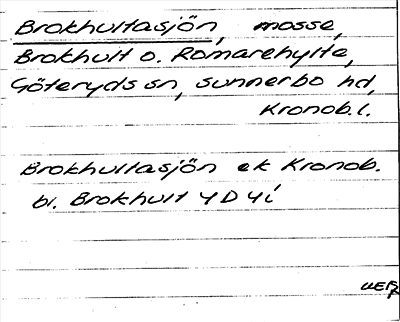 Brokhultasjön, mosse,
Brokhult o. Romarehylte,
Göteryds sn, sunnerbo hd,
Kronob.l.
Brokhultasjön ek Kronob.
bl. Brokhult 4D 4i